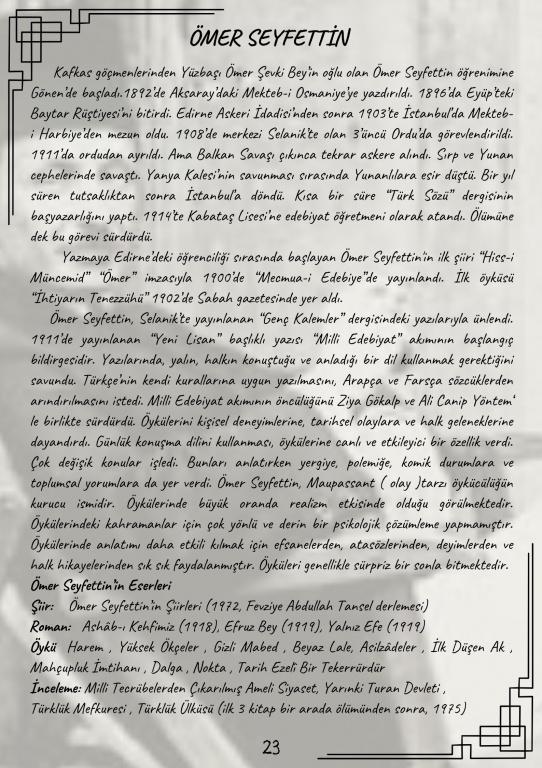 ÖMER SEYFETTİN
Kafkas göçmenlerinden Yüzbaşı Ömer Şevki Bey'in oğlu olan Ömer Seyfettin öğrenimine
Gönen'de başladı.1892'de Aksaray'daki Mekteb-i Osmaniye'ye yazdırıldı. 1896'da Eyüp'teki
Baytar Rüştiyesi'ni bitirdi. Edirne Askeri İdadisi'nden sonra 1903'te İstanbul'da Mekteb-
i Harbiye'den mezun oldu. 1908'de merkezi Selanik'te olan 3'üncü Ordu'da görevlendirildi.
1911'da ordudan ayrıldı. Ama Balkan Savaşı çıkınca tekrar askere alındı. Sırp ve Yunan
cephelerinde savaştı. Yanya Kalesi'nin savunması sırasında Yunanlılara esir düştü. Bir yıl
süren tutsaklıktan sonra İstanbul'a döndü. Kısa bir süre "Türk Sözü" dergisinin
başyazarlığını yaptı. 1914'te Kabataş Lisesi'ne edebiyat öğretmeni olarak atandı. Ölümüne
dek bu görevi sürdürdü.
Yazmaya Edirne'deki öğrenciliği sırasında başlayan Ömer Seyfettin'in ilk şiiri "Hiss-i
Müncemid" "Ömer" imzasıyla 1900'de "Mecmua-i Edebiye"de yayınlandı. İlk öyküsü
"İhtiyarın Tenezzühü" 1902'de Sabah gazetesinde yer aldı.
Ömer Seyfettin, Selanik'te yayınlanan "Genç Kalemler" dergisindeki yazılarıyla ünlendi.
1911'de yayınlanan "Yeni Lisan" başlıklı yazısı "Milli Edebiyat" akımının başlangıç
bildirgesidir. Yazılarında, yalın, halkın konuştuğu ve anladığı bir dil kullanmak gerektiğini
savundu. Türkçe'nin kendi kurallarına uygun yazılmasını, Arapça ve Farsça sözcüklerden
arındırılmasını istedi. Milli Edebiyat akımının öncülüğünü Ziya Gökalp ve Ali Canip Yöntem'
le birlikte sürdürdü. Öykülerini kişisel deneyimlerine, tarihsel olaylara ve halk geleneklerine
dayandırdı. Günlük konuşma dilini kullanması, öykülerine canlı ve etkileyici bir özellik verdi.
Çok değişik konular işledi. Bunları anlatırken yergiye, polemiğe, komik durumlara ve
toplumsal yorumlara da yer verdi. Ömer Seyfettin, Maupassant ( olay )tarzı öykücülüğün
kurucu ismidir. Öykülerinde büyük oranda realizm etkisinde olduğu görülmektedir.
Öykülerindeki kahramanlar için çok yönlü ve derin bir psikolojik çözümleme yapmamıştır.
Öykülerinde anlatımı daha etkili kılmak için efsanelerden, atasözlerinden, deyimlerden ve
halk hikayelerinden sık sık faydalanmıştır. Öyküleri genellikle sürpriz bir sonla bitmektedir.
Ömer Seyfettin'in Eserleri
Şiir: Ömer Seyfettin'in Şiirleri (1972, Fevziye Abdullah Tansel derlemesi)
Roman: Ashâb-ı Kehfimiz (1918), Efruz Bey (1919), Yalnız Efe (1919)
Öykü Harem , Yüksek Ökçeler , Gizli Mabed , Beyaz Lale, Asilzâdeler , İlk Düşen Ak ,
Mahçupluk İmtihanı , Dalga , Nokta , Tarih Ezelî Bir Tekerrürdür
İnceleme: Milli Tecrübelerden Çıkarılmış Ameli Siyaset, Yarınki Turan Devleti ,
Türklük Mefkuresi , Türklük Ülküsü (ilk 3 kitap bir arada ölümünden sonra, 1975)
23